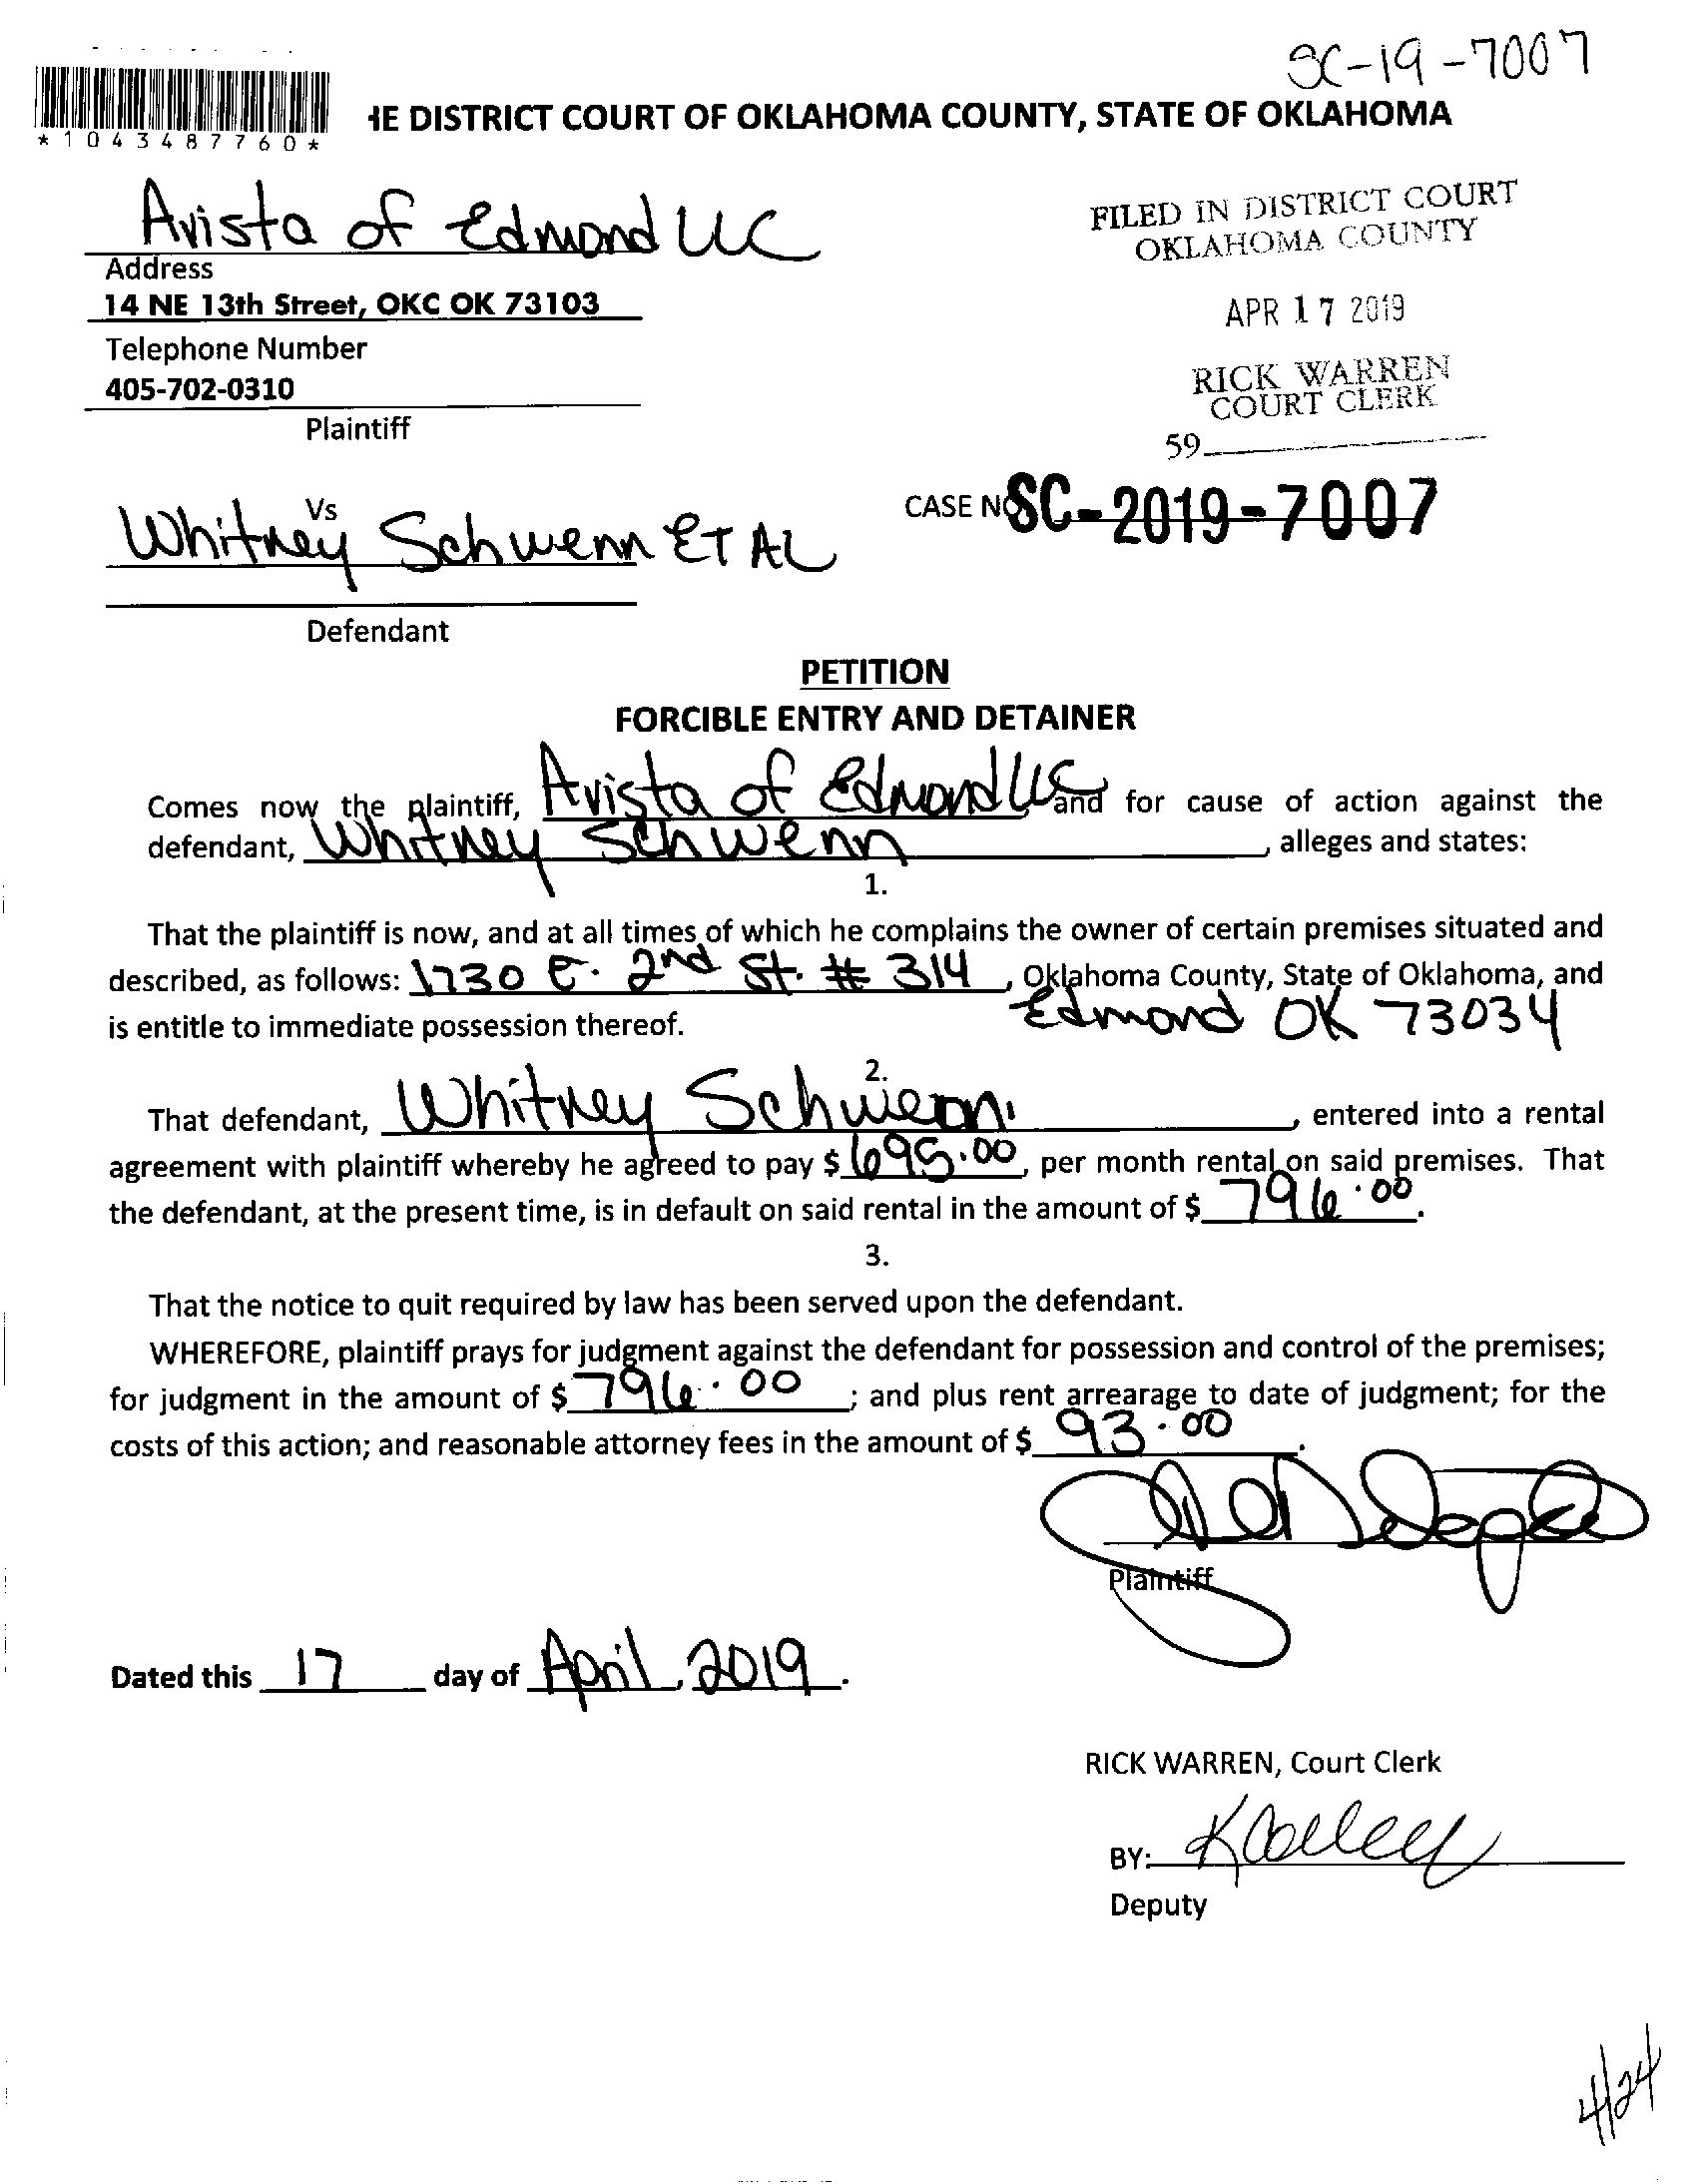 SC-19-7007
*1043487760*
HE DISTRICT COURT OF OKLAHOMA COUNTY, STATE OF OKLAHOMA
Avista of Edmond LLC
Address
14 NE 13th Street, OKC OK 73103
Telephone Number
405-702-0310
Plaintiff
FILED IN DISTRICT COURT
OKLAHOMA COUNTY
APR 17 2019
RICK WARREN
COURT CLERK
59
Vs
Whitney Schwenn ET AL
CASE NO SC-2019-7007
Defendant
PETITION
FORCIBLE ENTRY AND DETAINER
Comes now the plaintiff, Avista of Edmond LLC and for cause of action against the
defendant, Whitney Schwenn, alleges and states:
1.
That the plaintiff is now, and at all times of which he complains the owner of certain premises situated and
described, as follows: 1730 E. 2nd St. # 314, Oklahoma County, State of Oklahoma, and
is entitle to immediate possession thereof. Edmond OK 73034
2.
That defendant, Whitney Schwenn, entered into a rental
agreement with plaintiff whereby he agreed to pay $ 695.00, per month rental on said premises. That
the defendant, at the present time, is in default on said rental in the amount of $ 796.00.
3.
That the notice to quit required by law has been served upon the defendant.
WHEREFORE, plaintiff prays for judgment against the defendant for possession and control of the premises;
for judgment in the amount of $ 796.00; and plus rent arrearage to date of judgment; for the
costs of this action; and reasonable attorney fees in the amount of $ 93.00.
Plaintiff
Dated this 17 day of April, 2019.
RICK WARREN, Court Clerk
BY:
Deputy
4/24